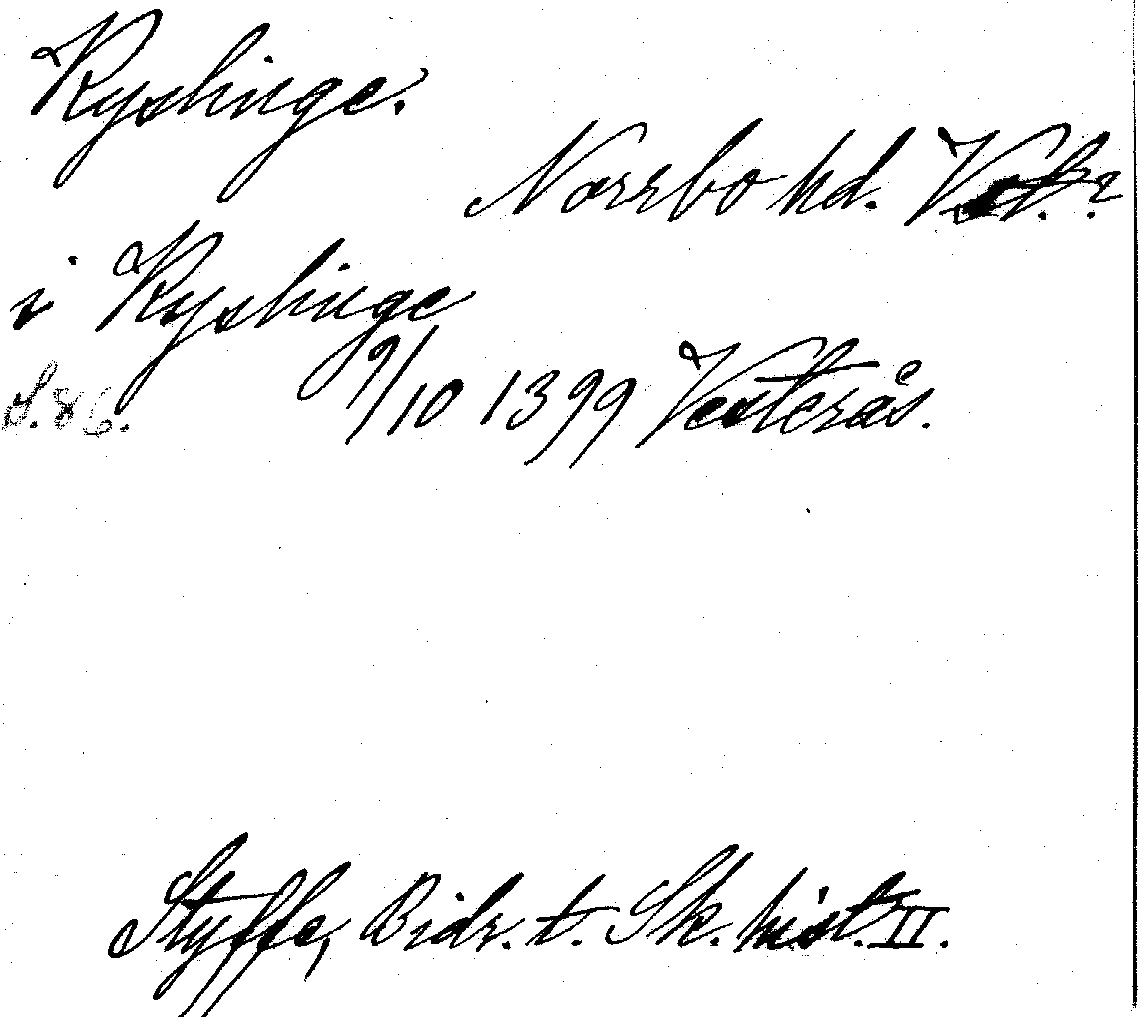 Ryshinge.
Norrbo hd. Vstm. ?
i Ryshinge
S. 86. 9/10 1399 Vesterås.
Styffe, Bidr. t. Sk. hist. II.